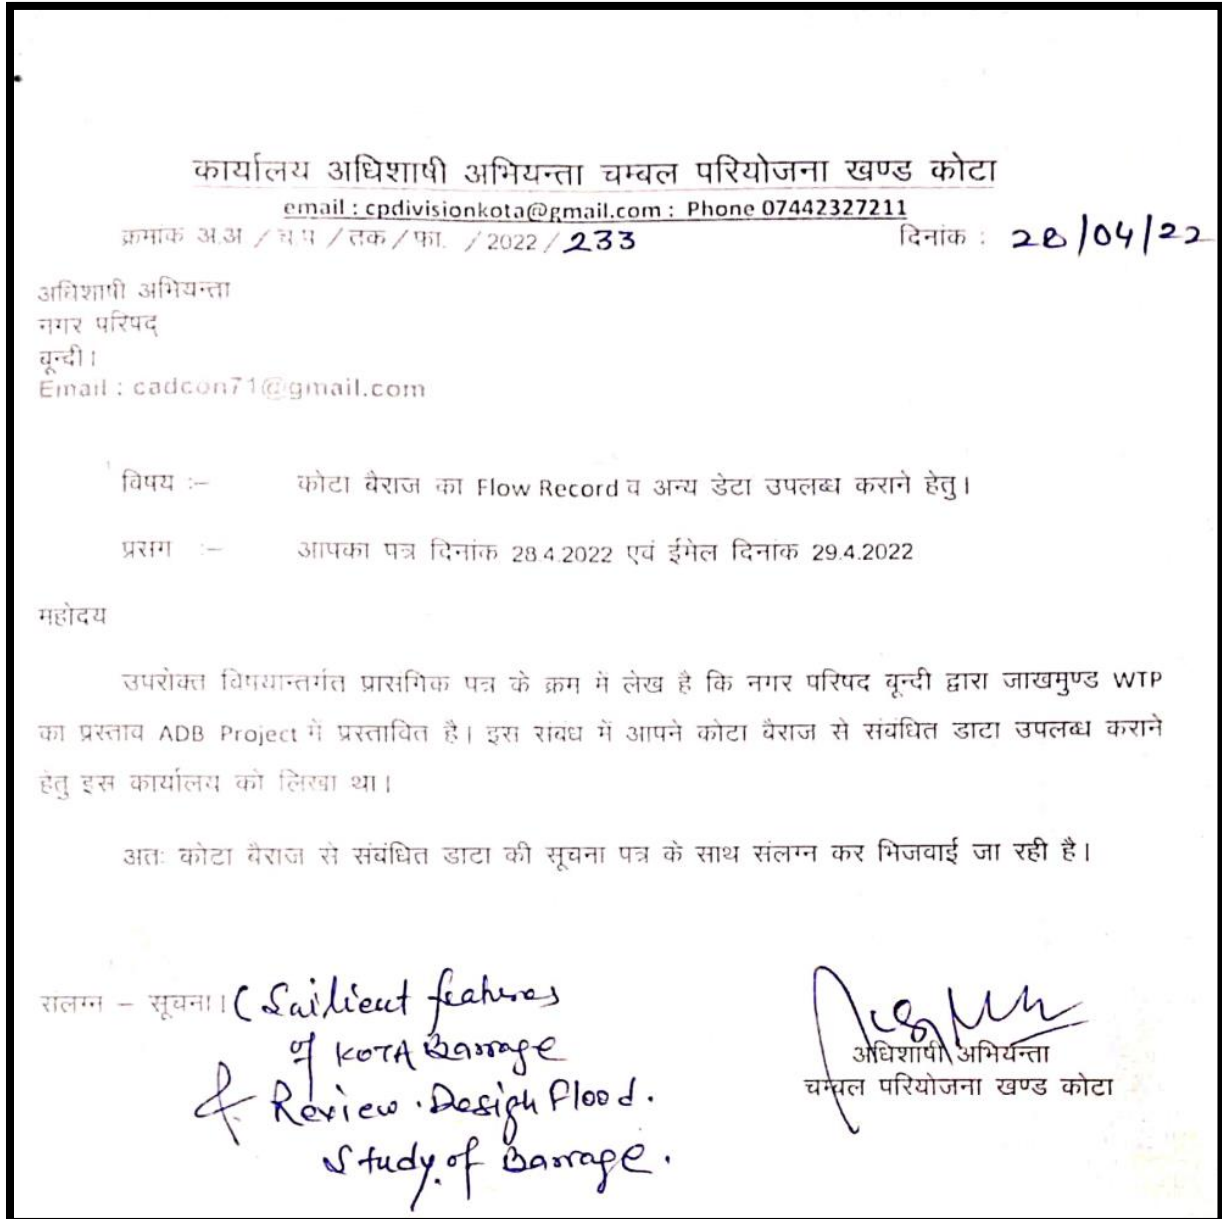 कार्यालय अधिशाषी अभियन्ता चम्बल परियोजना खण्ड कोटा
email : cpdivisionkota@gmail.com : Phone 07442327211
क्रमांक अ.अ / च.प / तक / फा. / 2022 / 233 दिनांक : 28/04/22
अधिशाषी अभियन्ता
नगर परिषद्
बून्दी।
Email : cadcon71@gmail.com
विषय :– कोटा बैराज का Flow Record व अन्य डेटा उपलब्ध कराने हेतु।
प्रसंग :– आपका पत्र दिनांक 28.4.2022 एवं ईमेल दिनांक 29.4.2022
महोदय
उपरोक्त विषयान्तर्गत प्रासंगिक पत्र के क्रम में लेख है कि नगर परिषद बून्दी द्वारा जाखमुण्ड WTP
का प्रस्ताव ADB Project में प्रस्तावित है। इस संबंध में आपने कोटा बैराज से संबंधित डाटा उपलब्ध कराने
हेतु इस कार्यालय को लिखा था।
अतः कोटा बैराज से संबंधित डाटा की सूचना पत्र के साथ संलग्न कर भिजवाई जा रही है।
संलग्न – सूचना। ( Sailient features
of KOTA Barrage
& Review. Design Flood.
Study of Barrage.
अधिशाषी अभियन्ता
चम्बल परियोजना खण्ड कोटा